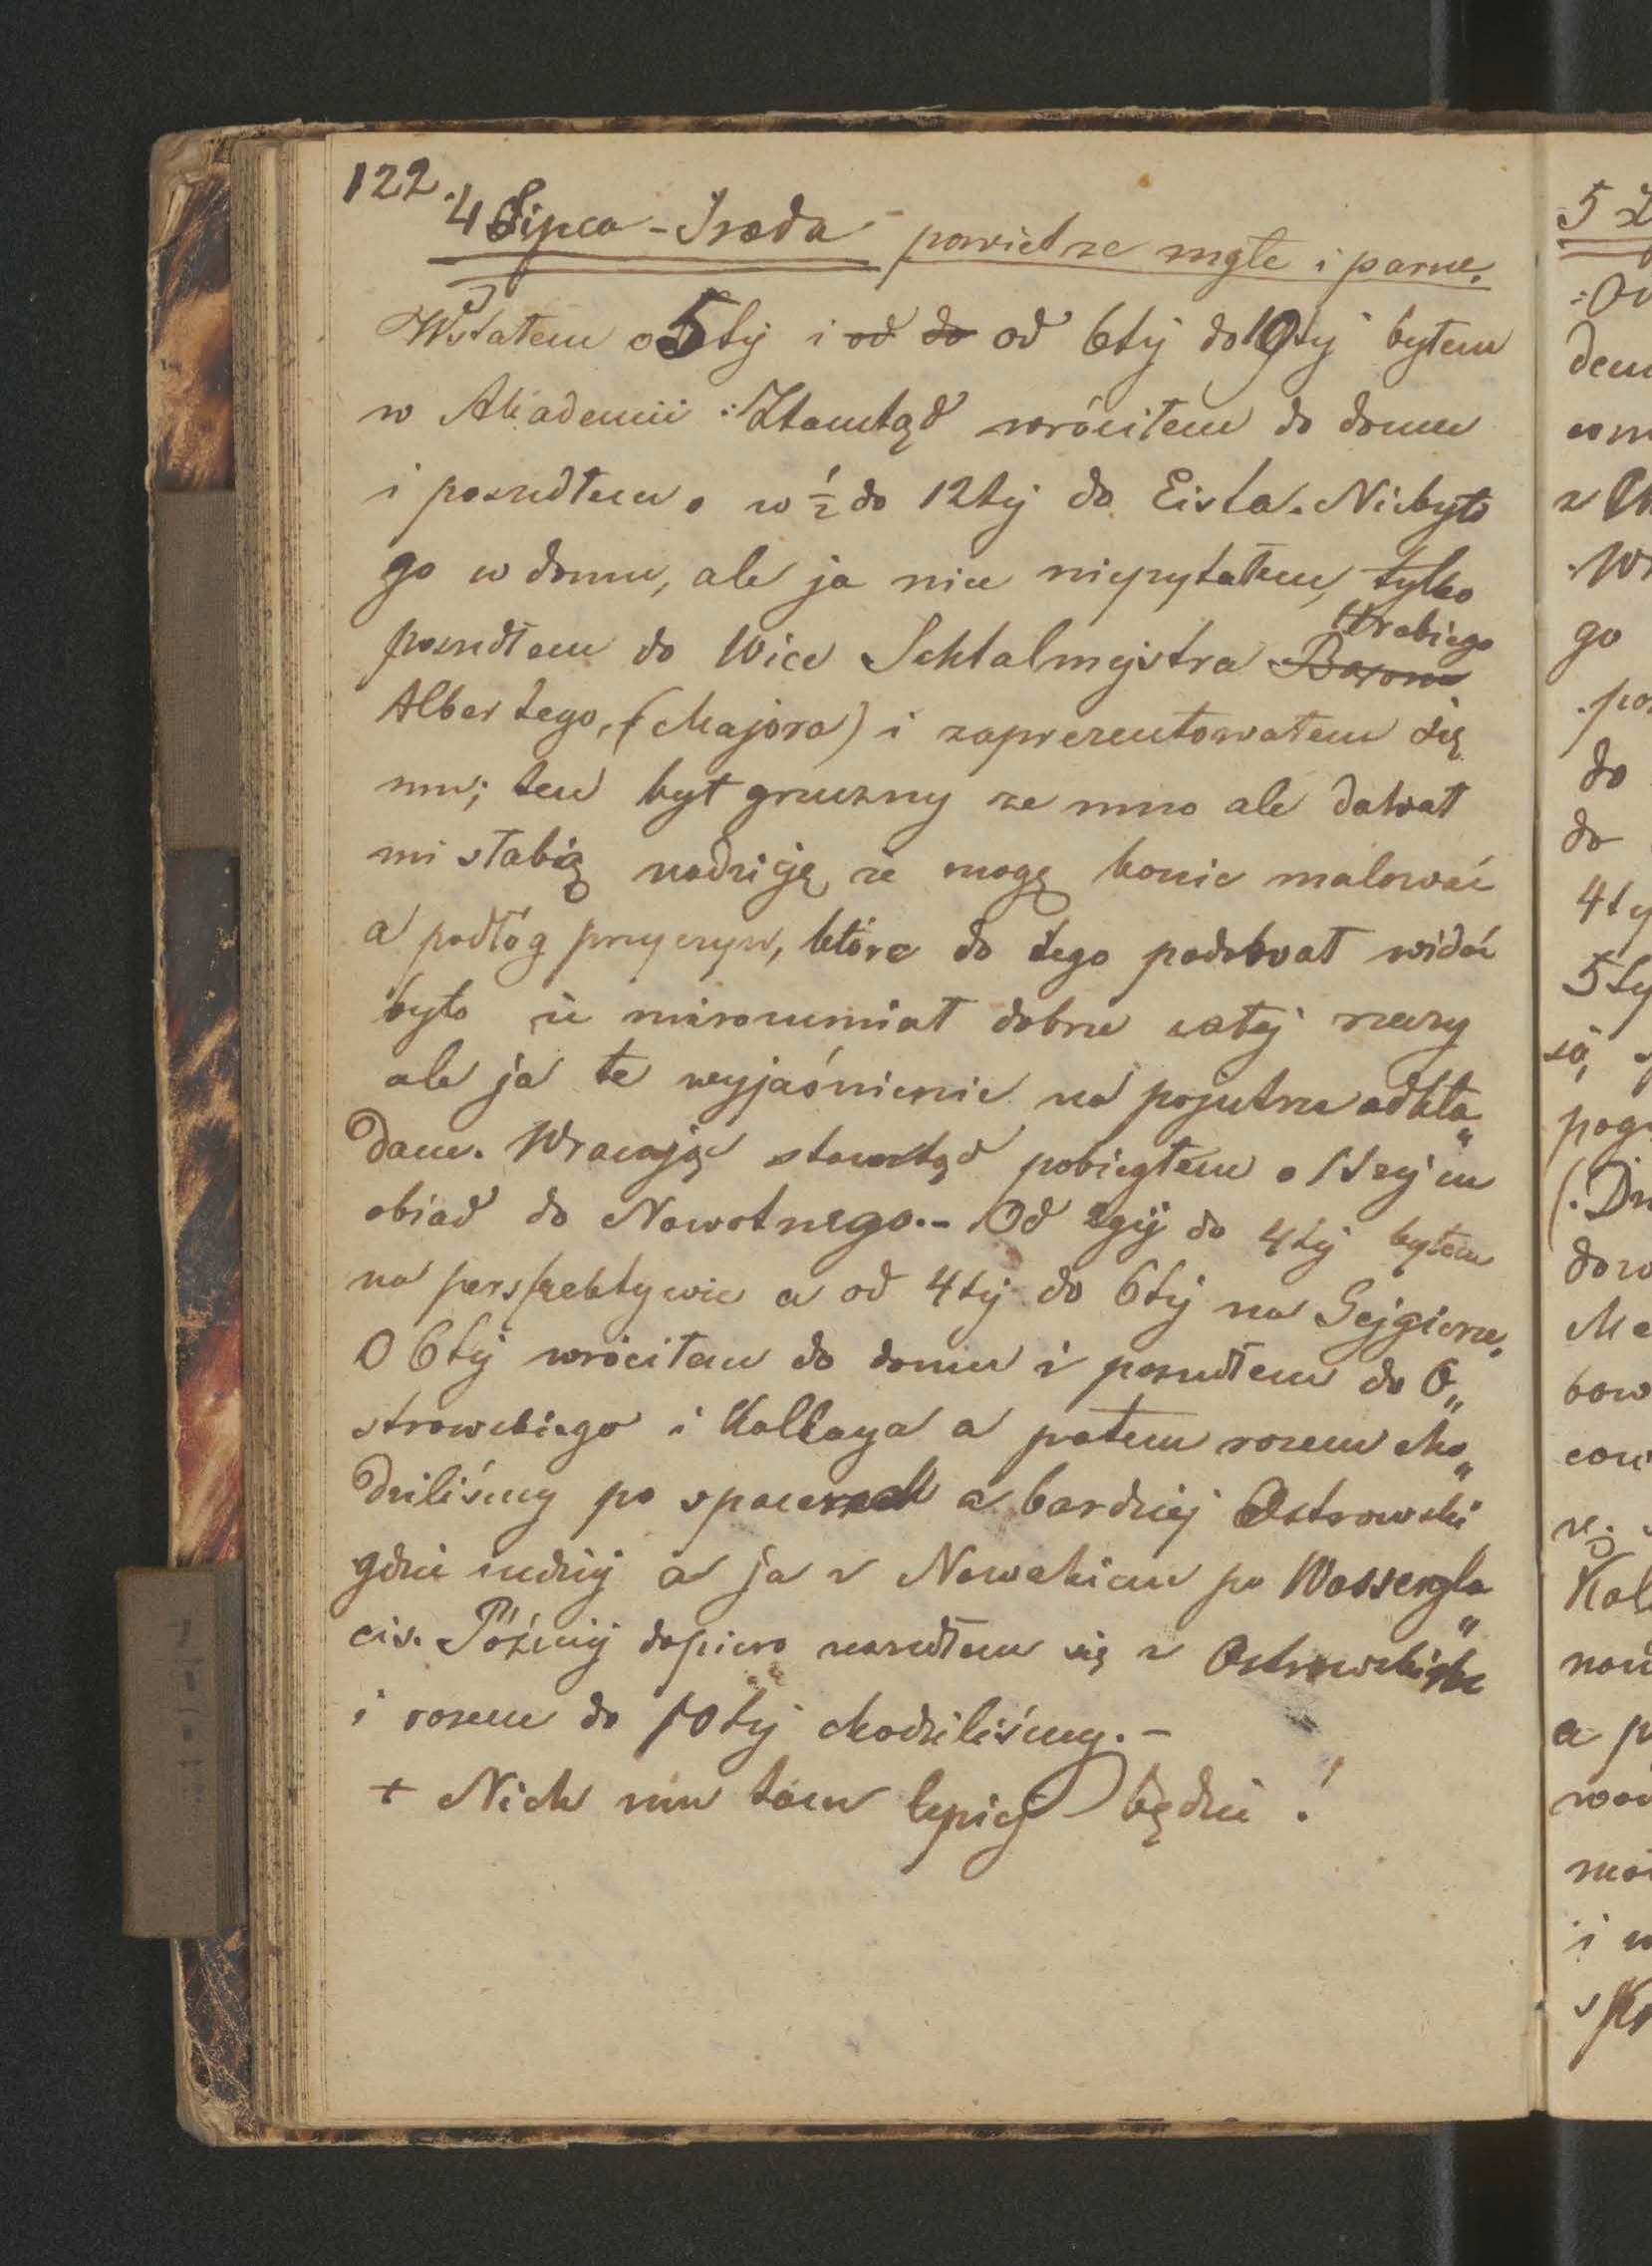 122.
4 Lipca - Sroda - powietrze mgłe i parne.
Wstałem o 5tij i od do od 6tij do 10tij byłem
w Akademii : Ztamtąd wróciłem do domu
i poszedłem o w ½ do 12tij do Eista. Niebyło
go w domu, ale ja nic niepytałem, tylko
Hrabiego
poszedłem do Wice Schtalmejstra Barona
Albertego, (Majora) i zaprezentowałem się
mu; ten był grzeczny ze mno ale dawał
mi słabią nadzieję, że mogę konie malować
a podłóg przyczyn, które do tego podawał widać
było że nierozumiał dobrze całej rzeczy
ale ja te wyjaśnienie na pojutrze odkła„
dam. Wracając stamtąd pobiegłem o 1szej na
obiad do Nowotnego.- Od 2gij do 4tij byłem
na perspektywie a od 4tij do 6tij na Gejgierze.
O 6tij wróciłem do domu i poszedłem do O„
strowskiego i Kallaya a potem rozem cho„
dziliśmy po spacerach a bardziej Ostrowski
gdzie indzij a ja z Nowakiem po Wassergla„
cis. Późnij dopiero zeszedłem się z Ostrowskim
i rozem do 10tij chodziliśmy. -
+ Niech mu tam lepiej będzie !
5
do
do
4ty
5ty
go